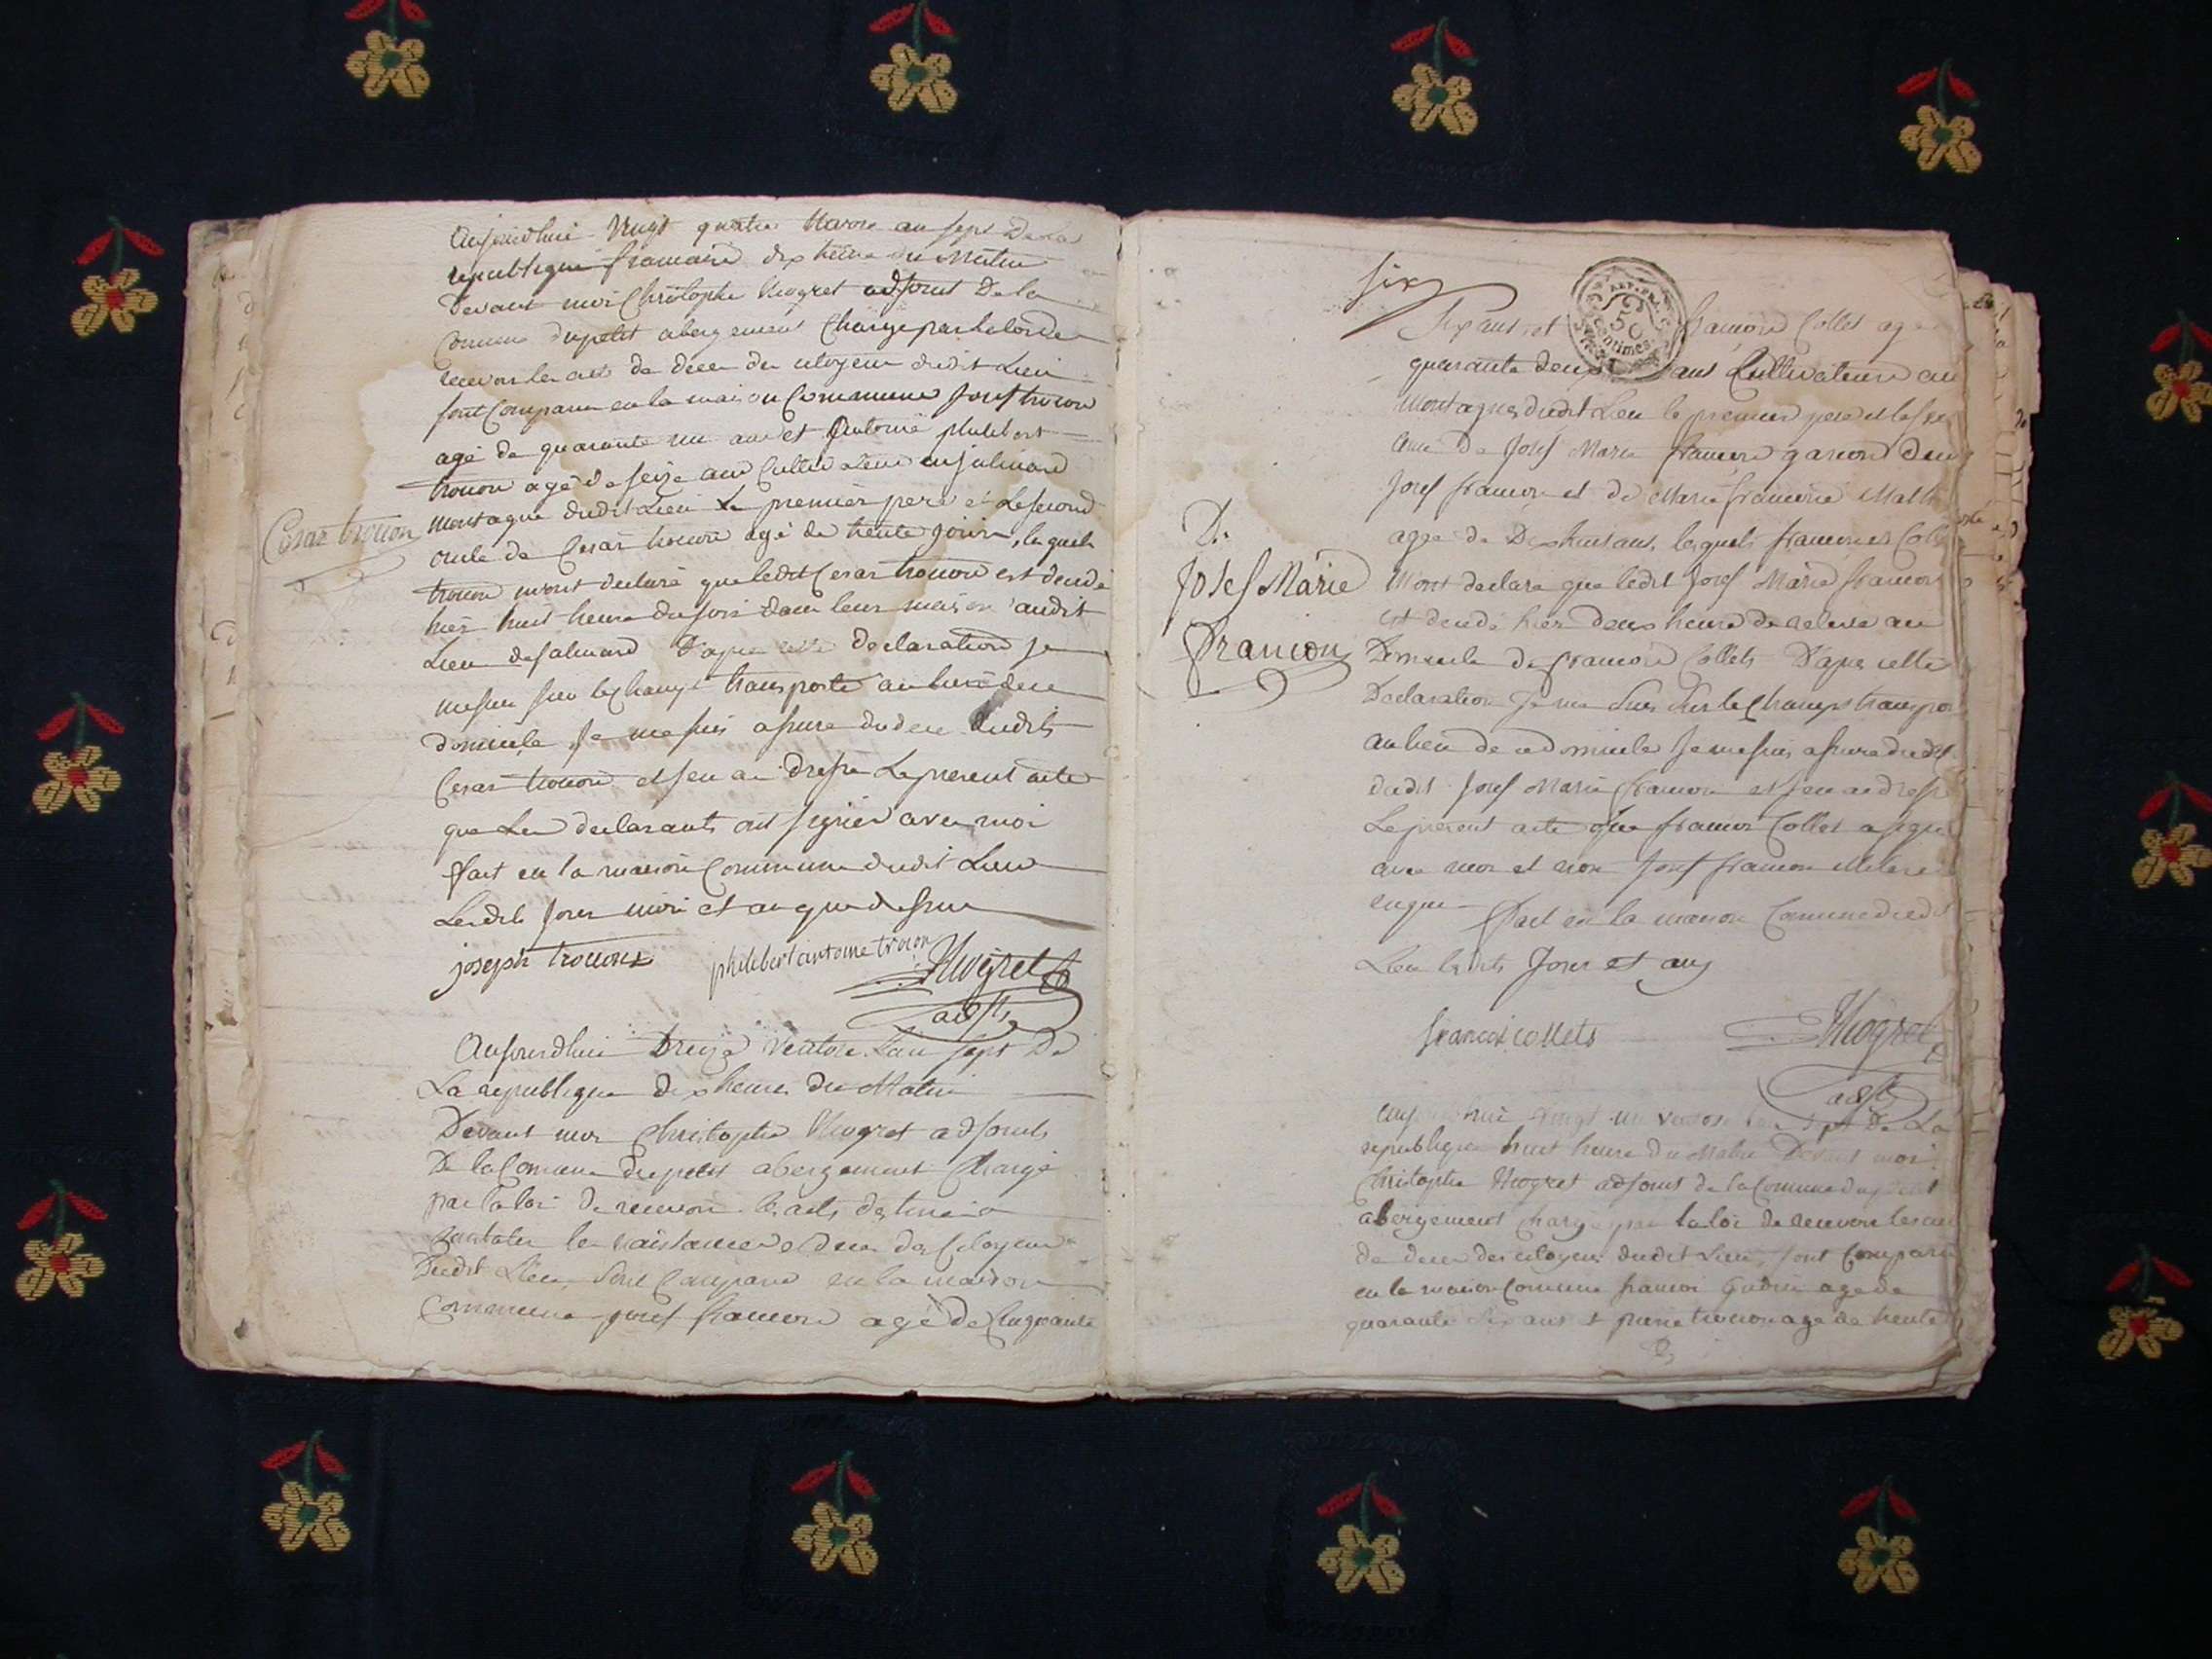 Aujourdhui Vingt quatre Nivose an sept De la
republique francaise dix heure du Matin
Devant moi Christophe Niogret adjoint De la
Comune du petit abergement Charge par la loi de
recevoir les acts de deces des citoyens dudit Lieu
sont Comparu en la maison Commune Josef trocon
agé de quarante un ans et Antoine philibert
trocon agé de seize ans Cultivateurs en jalinard
montagne dudit Lieu Le premier pere et Le second
oncle de Cesar trocon agé de trente jours, lesquels
trocon mont declaré que ledit Cesar trocon est decedé
hier huit heure du soir dans leur maison audit
Lieu de jalinard D'apres cette declaration je
me suis sur le champ transporté au lieu de ce
domicile Je me suis assure du deces dudit
Cesar trocon et j'en ai dressé Le present acte
que Les declarants ont signés avec moi
fait en la maison Commune dudit Lieu
Lesdits Jour mois et an que dessus
Cesar trocon
joseph trocon philibert antoine trocon Niogret
adjt
Aujourdhui treize Ventose L'an sept De
La republique dix heures du Matin
Devant moi Christophe Niogret adjoint
De la Comune du petit abergement Chargé
par la loi de recevoir les acts destinés a
constater les naissances et deces des Citoyens
Dudit Lieu, sont Comparu en la maison
Commune josef francon agé de Cinquante
six
Six ans, et francois Collet agé
50
centimes
quarante deux ans Cultivateurs au
Montagnes dudit Lieu le premier pere et le
de Josef Marie francon garcon de
Josef francon et de Marie francoise
agé de Dix huit ans, lesquels francon et
Mont declare que ledit Josef Marie francon
est decedé hier deux heure de relevée au
Domicile de francois Collets D'apres cette
Declaration Je me suis sur le Champ
au lieu de ce domicile Je me suis assure
dudit Josef Marie francon et j'en ai dressé
Le present acte que francois Collet a signé
avec moi et non Josef francon
enquis fait en la maison Comune dudit
Lieu lesdits Jour et an
D.
Josef Marie
francon
francois collets Niogret
adjt
vingt un ventose De La
republique huit heure du Matin Devant moi
Christophe Niogret adjoint de la Comune du petit
abergement chargé par la loi de recevoir les
de deces des citoyens dudit Lieu, sont Comparu
en la maison Comune francois agé de
quarante six ans et pierre trocon agé de trente